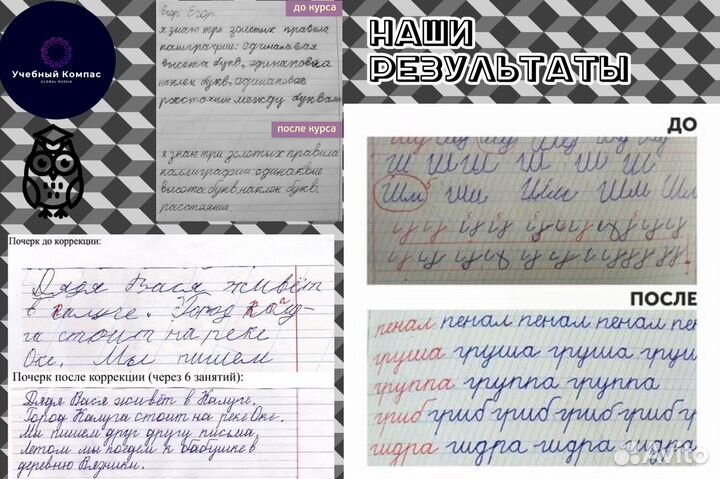 Учебный Компас
GLOBAL RUSSIA
до курса
Егор Егор
я знаю три золотых правила
каллиграфии: одинаковая
высота букв, одинаковый
наклон букв, одинаковое
расстояние между буквами
после курса
я знаю три золотых правила
каллиграфии: одинаковые
высота букв, наклон букв,
расстояние.
Почерк до коррекции:
Дядя Вася живёт
в Калуге. Город Калу-
га стоит на реке
Оке. Мы пишем
Почерк после коррекции (через 6 занятий):
Дядя Вася живёт в Калуге.
Город Калуга стоит на реке Оке.
Мы пишем друг другу письма.
Летом мы поедем к бабушке в
деревню Вязники.
НАШИ
РЕЗУЛЬТАТЫ
ДО
Ш Ш Ш Ш Ш Ш
Шм Ши Шм Шм Шм
ПОСЛЕ
пенал пенал пенал пенал пен
груша груша груша груш
группа группа группа
гриб гриб гриб гриб гриб гр
гидра гидра гидра гидра
Avito